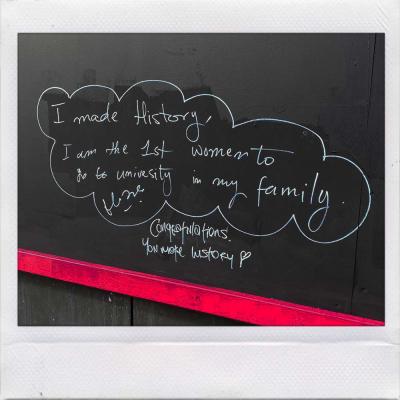 I made History,
I am the 1st women to
go to university in my family.
Congratulations.
You make history